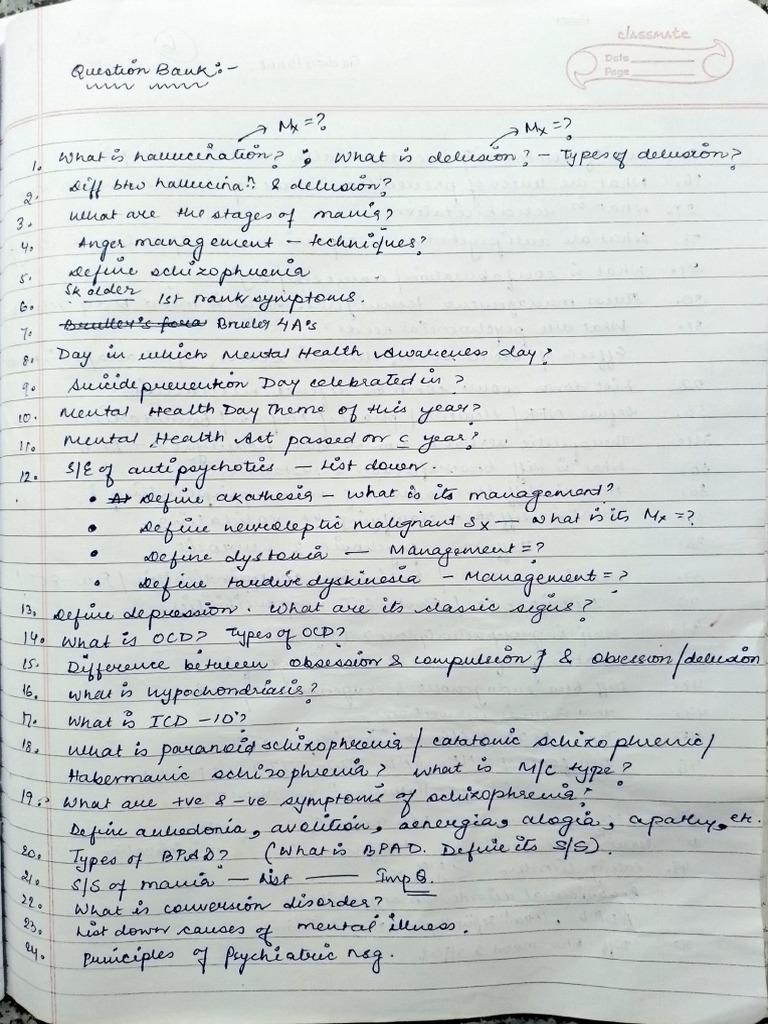 classmate
Date
Page
Question Bank:-
Mx=? Mx=?
1. What is hallucination? ; What is delusion? - Types of delusion?
2. Diff btw hallucinaⁿ & delusion?
3. What are the stages of mania?
4. Anger management - techniques?
5. Define schizophrenia
6. Skolder 1st rank symptoms.
7. Bruler 4A's
8. Day in which Mental Health Awareness day?
9. Suicide prevention Day celebrated in?
10. Mental Health Day Theme of this year?
11. Mental Health Act passed on c year?
12. S/E of antipsychotics - List down.
• Define akathesia - what is its management?
• Define neuroleptic malignant Sx - What is its Mx=?
• Define dystonia - Management=?
• Define tardive dyskinesia - Management=?
13. Define depression. What are its classic signs?
14. What is OCD? Types of OCD?
15. Difference between obsession & compulsion} & obsession/delusion
16. What is hypochondriasis?
17. What is ICD-10?
18. What is paranoid schizophrenia / catatonic schizophrenic/
Habermanic schizophrenia? What is M/C type?
19. What are +ve & -ve symptoms of schizophrenia?
Define anhedonia, avolition, aenergia, alogia, apathy, etc.
20. Types of BPAD? (What is BPAD. Define its S/S).
21. S/S of mania - List — Imp Q.
22. What is conversion disorder?
23. List down causes of mental illness.
24. Principles of Psychiatric nsg.